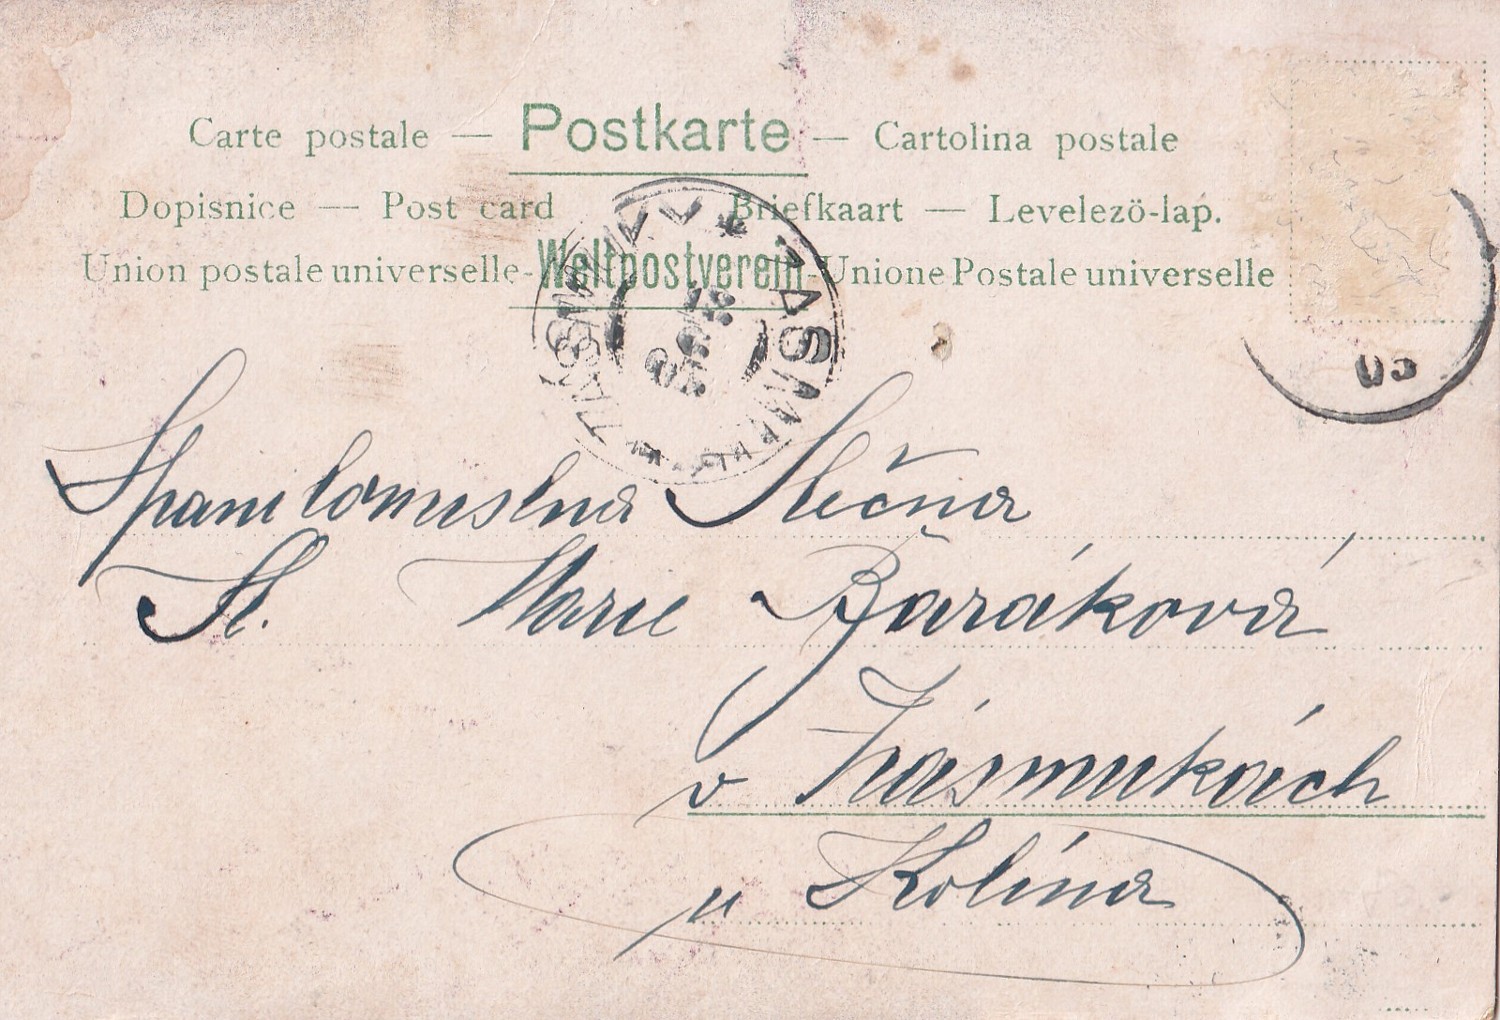 Carte postale — Postkarte — Cartolina postale
Dopisnice — Post card Briefkaart — Levelező-lap.
Union postale universelle - Weltpostverein - Unione Postale universelle
ZASMUK
ZÁSMUKY
03
Slečna
Sl. Marie Baráková
v Zásmukách
u Kolína